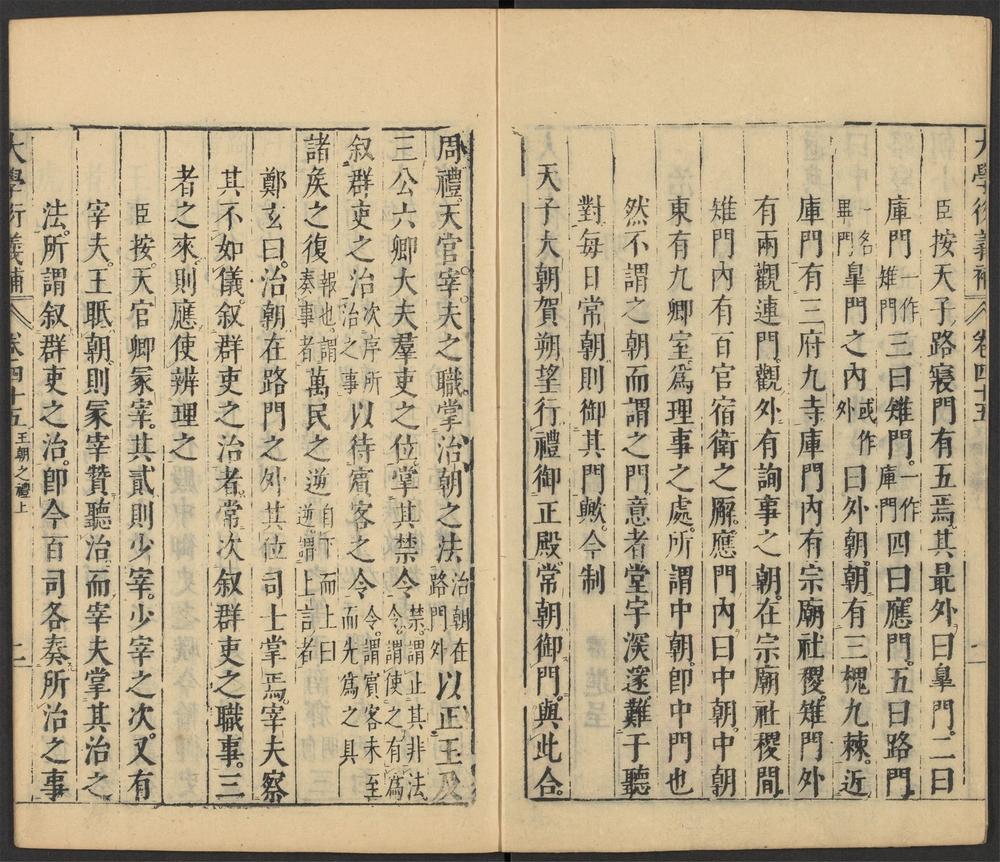 大學衍義補 卷四十五
臣按天子路寢門有五焉其最外曰臯門二曰
庫門一作雉門三曰雉門一作庫門四曰應門五曰路門
一名畢門臯門之內或作外曰外朝朝有三槐九棘近
庫門有三府九寺庫門內有宗廟社稷雉門外
有兩觀連門觀外有詢事之朝在宗廟社稷間
雉門內有百官宿衛之廨應門內曰中朝中朝
東有九卿室為理事之處所謂中朝即中門也
然不謂之朝而謂之門意者堂宇深邃難于聽
對每日常朝則御其門歟今制
天子大朝賀朔望行禮御正殿常朝御門與此合
周禮天官宰夫之職掌治朝之法治朝在路門外以正王及
三公六卿大夫羣吏之位掌其禁令禁謂止其非法令謂使之有為
叙群吏之治次序所治之事以待賓客之令令謂賓客未至而先為之具
諸矦之復報也謂奏事者萬民之逆自下而上曰逆謂上言者
鄭玄曰治朝在路門之外其位司士掌焉宰夫察
其不如儀叙群吏之治者常次叙群吏之職事三
者之來則應使辨理之
臣按天官卿冢宰其貳則少宰少宰之次又有
宰夫王眂朝則冢宰贊聽治而宰夫掌其治之
法所謂叙群吏之治即今百司各奏所治之事
大學衍義補 卷四十五 王朝之禮上 二